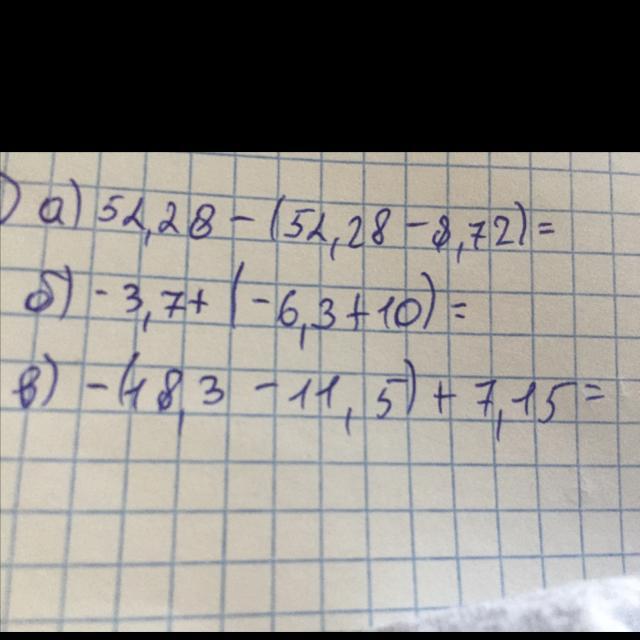 ) а) 52,28 - (52,28 - 8,72) =
б) - 3,7 + (- 6,3 + 10) =
в) - (18,3 - 11,5) + 7,15 =